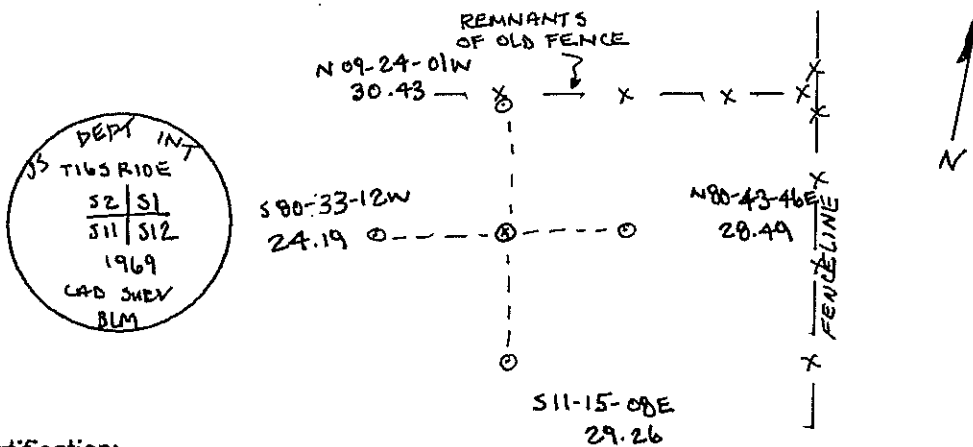 REMNANTS
OF OLD FENCE
N 09-24-01W
30.43
US DEPT INT
T16S R10E
S2 S1
S11 S12
1969
CAD SURV
BLM
S 80-33-12W
24.19
N80-43-46E
28.49
FENCELINE
N
S11-15-08E
29.26